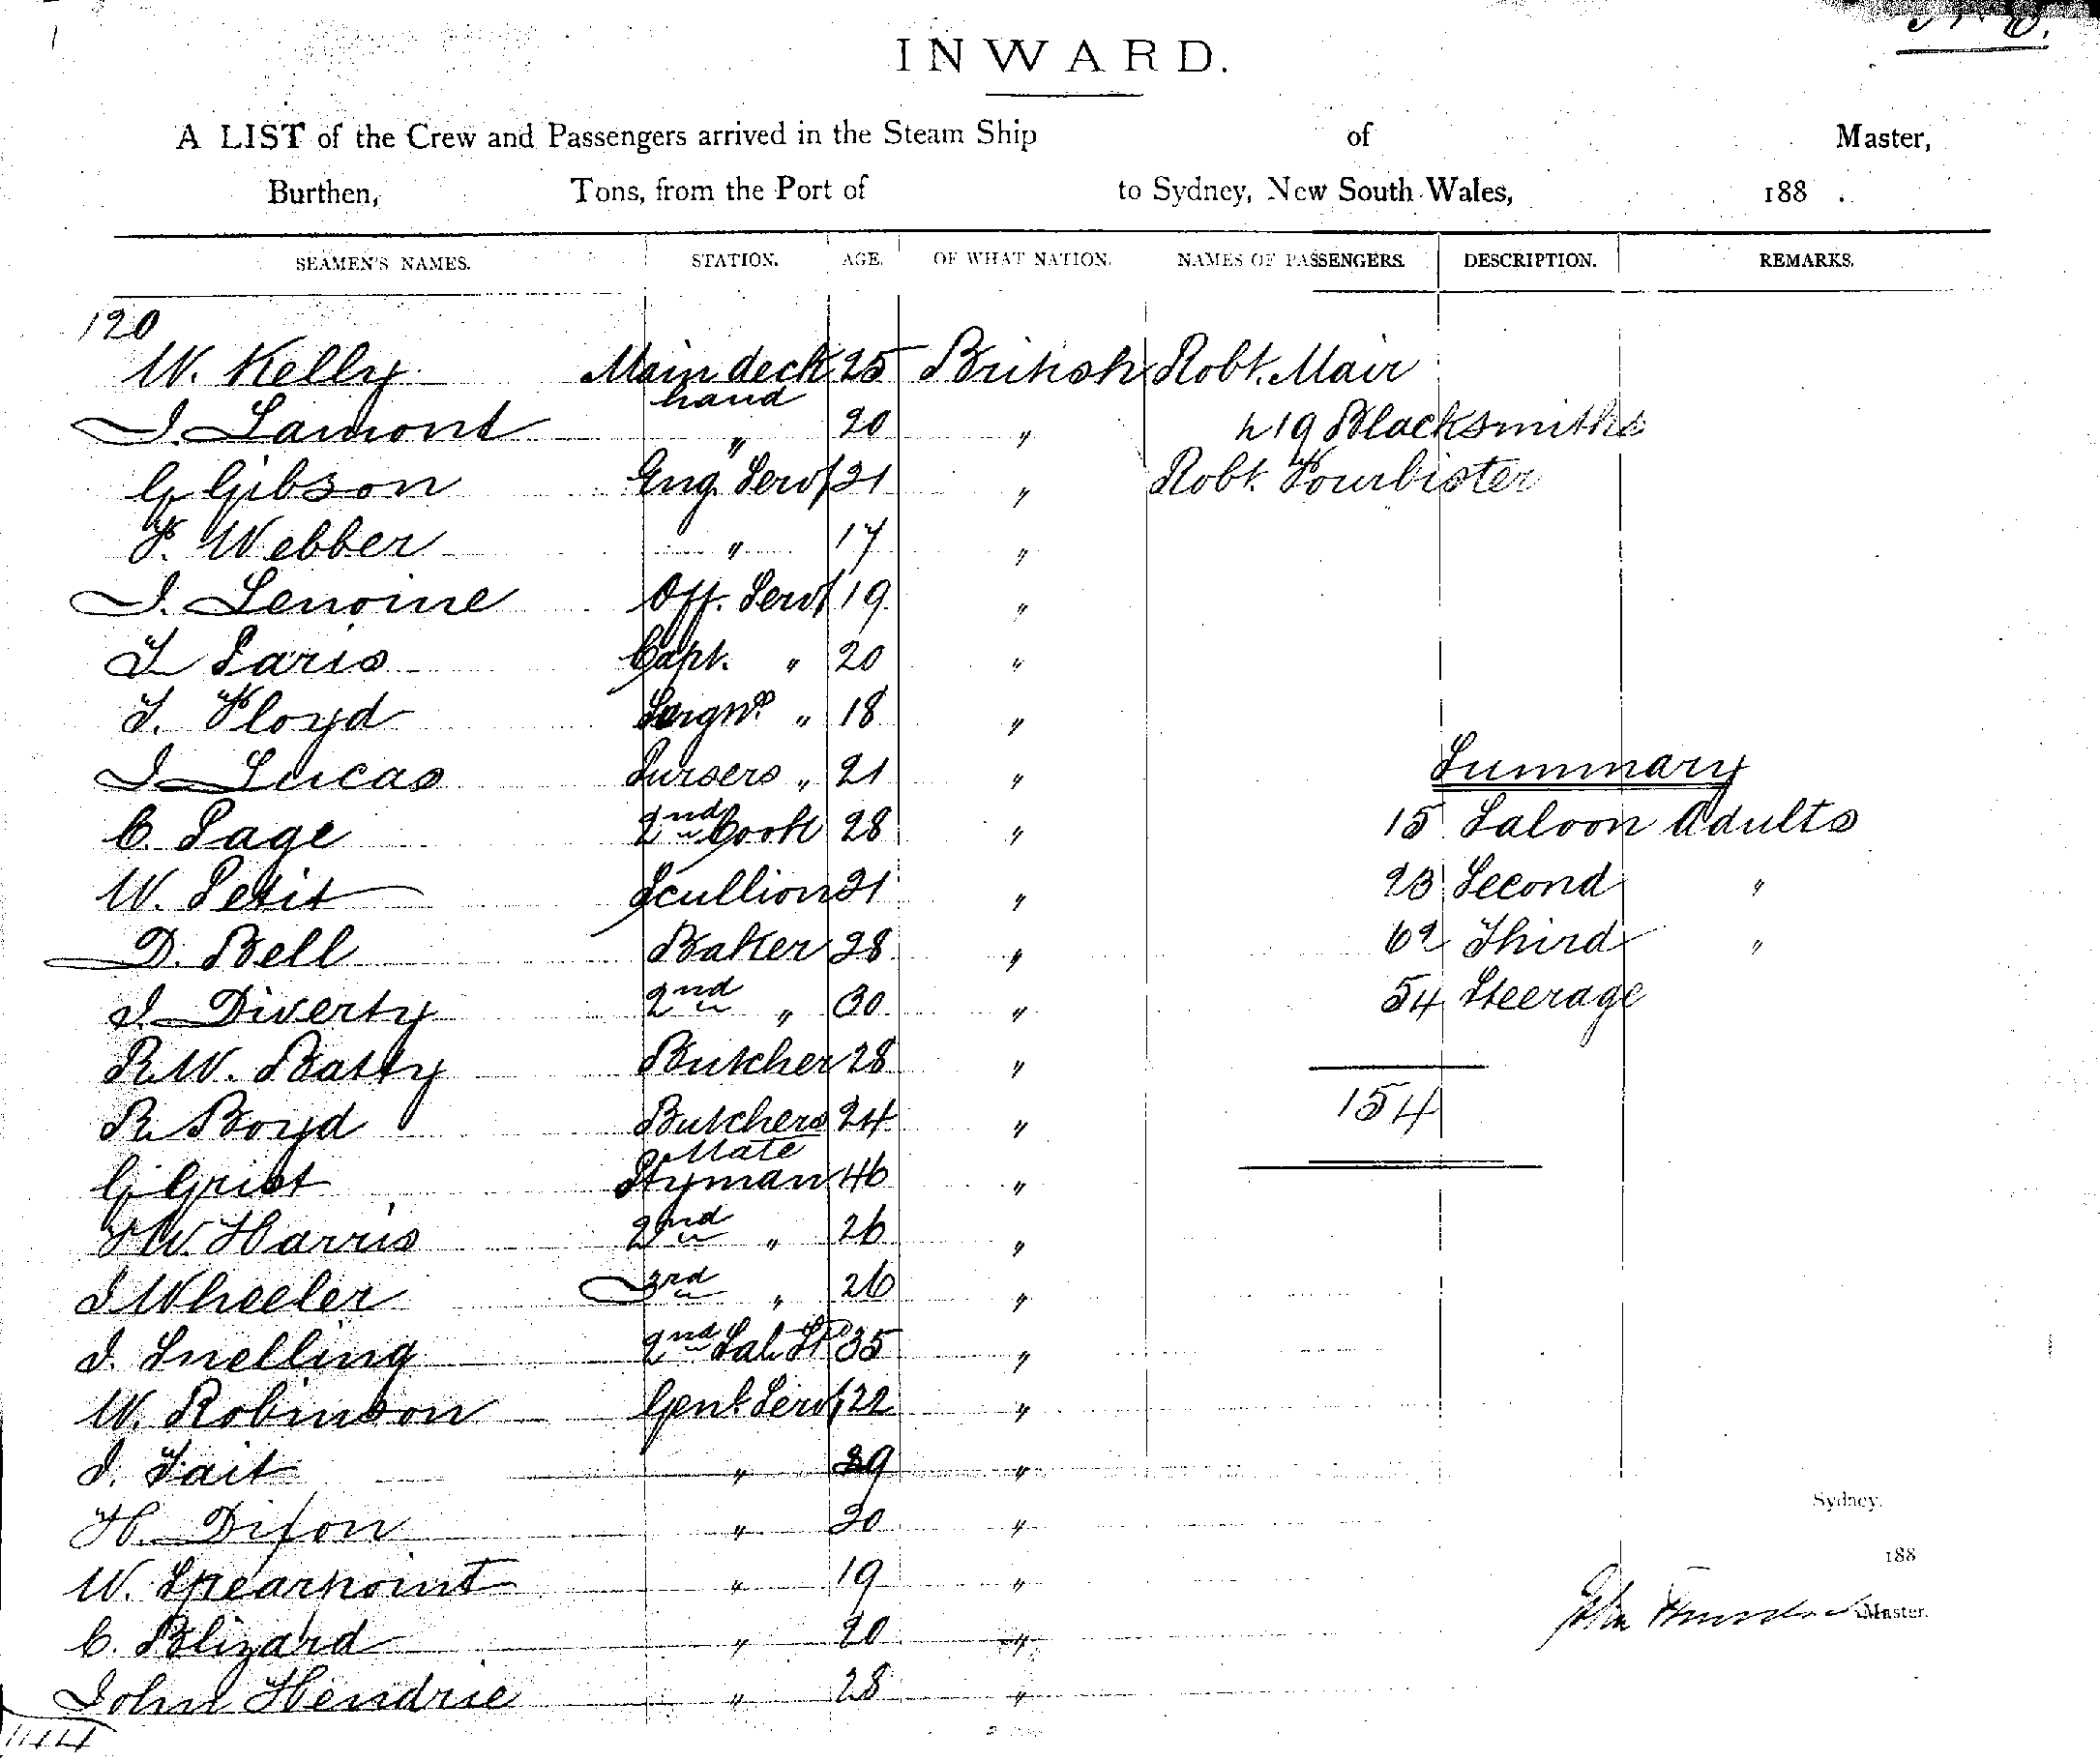 INWARD.
A LIST of the Crew and Passengers arrived in the Steam Ship of Master,
Burthen, Tons, from the Port of to Sydney, New South Wales, 188 .
SEAMEN'S NAMES. STATION. AGE. OF WHAT NATION. NAMES OF PASSENGERS. DESCRIPTION. REMARKS.
120
W. Kelly Main deck hand 25 British Robt. Mair
J. Lamont " 20 " 219 Blacksmiths
G Gibson Eng. Servt 21 " Robt. Fourbister
F. Webber " 17 "
J. Lenoine Off. Servt 19 "
T Paris Capt. " 20 "
T. Floyd " 18 "
J Lucas Pursers " 21 " Summary
C. Page 2nd Cook 28 " 15 Saloon Adults
W. Petit Scullion 21 " 23 Second "
D. Bell Baker 28 " 62 Third "
J. Diverty 2nd " 30 " 54 Steerage
R.W. Batty Butcher 28 "
R Boyd Butchers Mate 24 " 154
G Grist Styman 46 "
F W. Harris 2nd " 26 "
J Wheeler 3rd " 26 "
J. Snelling 2nd Sal. St 35 "
W. Robinson Genl. Servt 22 "
J. Tait " 39 "
H. Dixon " 20 " Sydney.
W. Spearpoint " 19 " 188
C. Blizard " 20 " John Master.
John Hendrie " 28 "
144